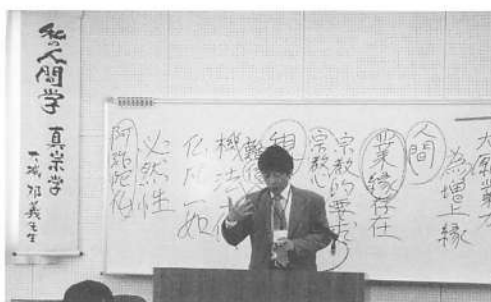 私の人間学 真宗学
大城邦義先生
大願業力
為増上縁
人間
業縁存在
宗教的要求
宗教心
機法
仏凡一如
必然性
阿弥陀仏